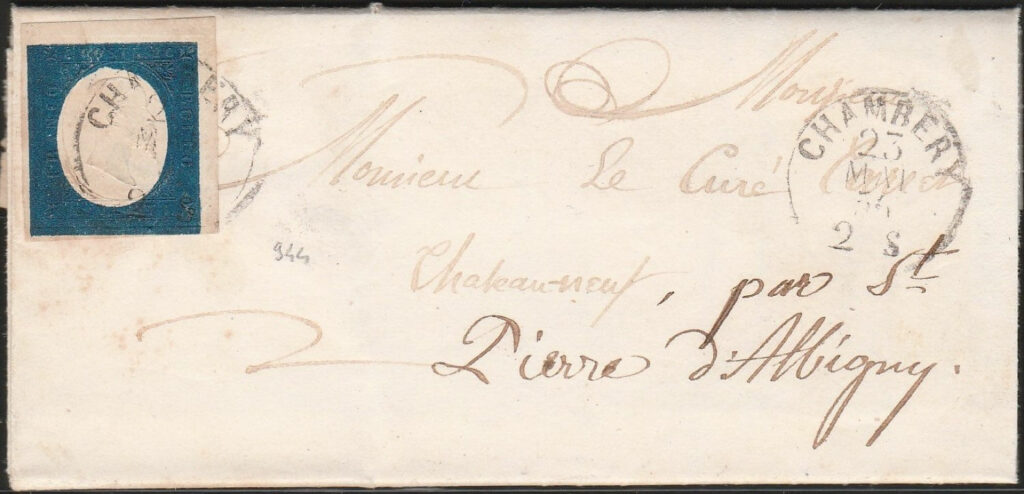 CHAMBERY
Monsieur
CHAMBERY
23
MAI
2 S
Monsieur Le Curé
944
Chateau-neuf, par St
Pierre d'Albigny.